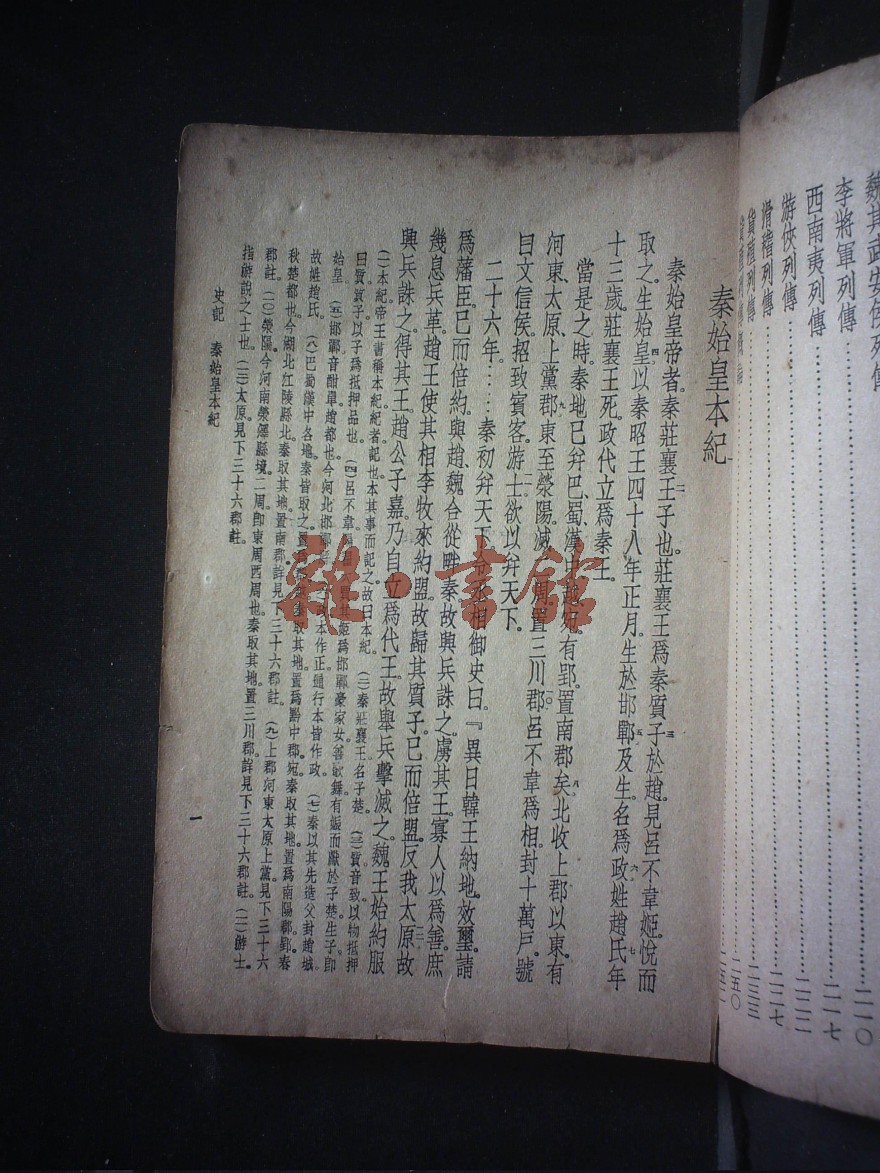 魏其武安侯列傳
李將軍列傳……二一〇
西南夷列傳……二一七
游俠列傳……二二二
滑稽列傳……二二七
貨殖列傳……二三三
二五〇
二五
秦始皇本紀
秦始皇帝者。秦莊襄王子也。莊襄王爲秦質子於趙。見呂不韋姬。悅而
取之。生始皇。以秦昭王四十八年正月。生於邯鄲。及生。名爲政。姓趙氏。年
十三歲。莊襄王死。政代立爲秦王。
當是之時。秦地已幷巴、蜀、漢中。越宛有郢。置南郡矣。北收上郡以東。有
河東、太原、上黨郡。東至滎陽。滅二周。置三川郡。呂不韋爲相。封十萬戶。號
曰文信侯。招致賓客游士。欲以幷天下。
二十六年。……秦初幷天下。令丞相御史曰。『異日韓王納地。效璽。請
爲藩臣。已而倍約。與趙、魏合從畔秦。故興兵誅之。虜其王。寡人以爲善。庶
幾息兵革。趙王使其相李牧來約盟。故歸其質子。已而倍盟。反我太原。故
興兵誅之。得其王。趙公子嘉。乃自立爲代王。故舉兵擊滅之。魏王始約服
(一)本紀帝王書稱本紀。紀者記也。本其事而記之。故曰本紀。 (二)秦莊襄王名子楚。 (三)質音致。以物抵押
曰質。質子以子爲抵押品也。 (四)呂不韋 姬爲邯鄲豪家女。善歌舞。有娠而獻於子楚。生子即
始皇。 (五)邯鄲音酣單。趙都也。今河北邯鄲 本作正。通行本皆作政。 (七)秦以其先造父封趙城。
故姓趙氏。 (八)巴蜀漢中各地。秦皆取之。置 秦取其地。置爲黔中郡。宛。秦取其地。置爲南陽郡。郢。春
秋楚都也。今湖北江陵縣北。秦取其地。置南郡。詳見下三十六郡註。 (九)上郡河東太原上黨。見下三十六
郡註。 (一〇)滎陽。今河南滎澤縣境。二周。即東周西周也。秦取其地。置三川郡。詳見下三十六郡註。 (一一)游士。
指游說之士也。 (一二)太原。見下三十六郡註。
史記 秦始皇本紀
一
雜·書館